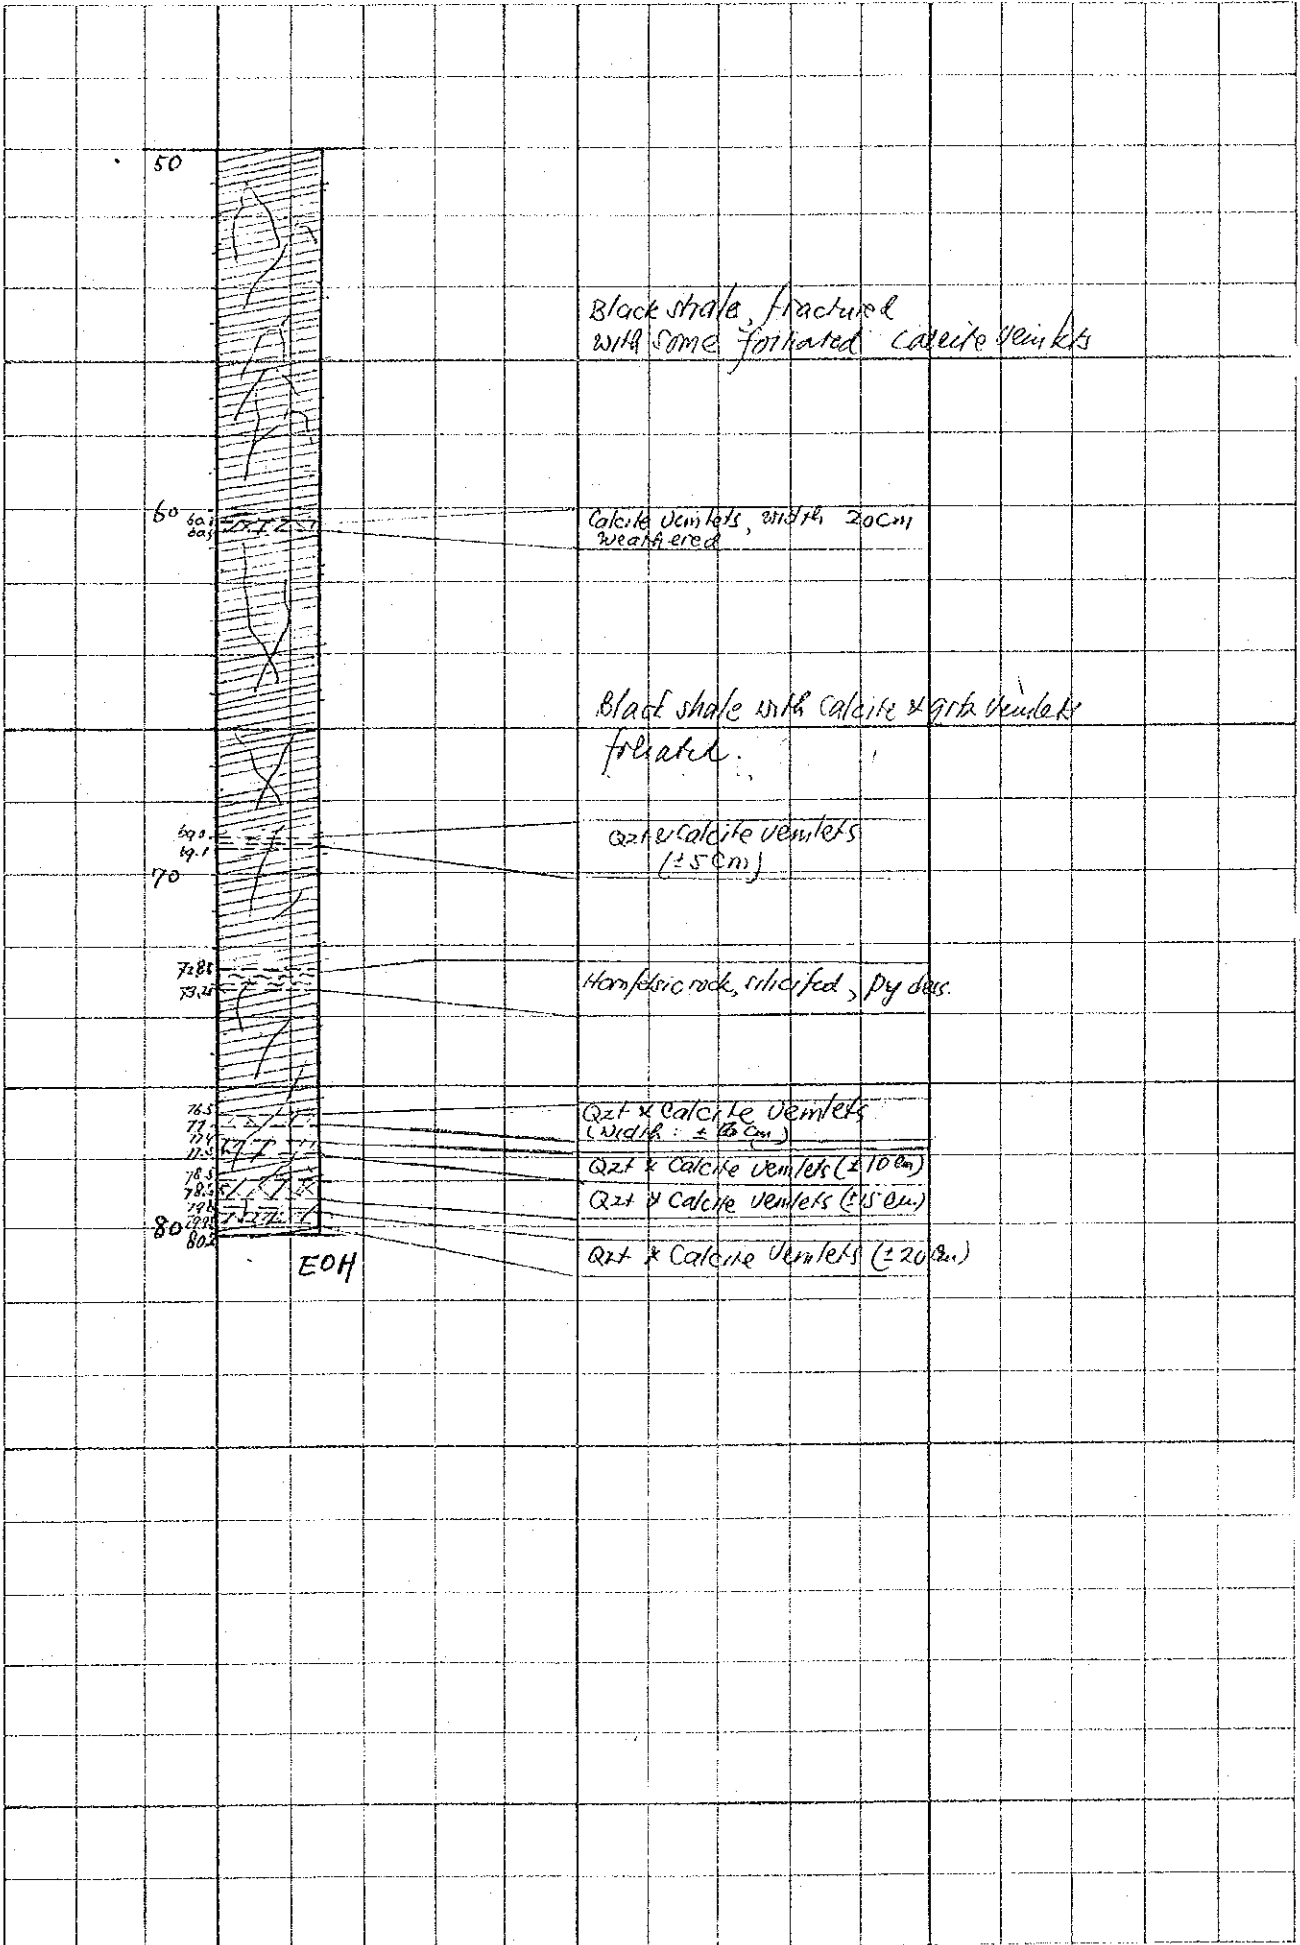 50
Black shale, fractured
with some foliated calcite veinlets
60
Calcite veinlets, width 20cm
weathered
Black shale with Calcite & qrtz veinlets
foliated.
69.0
69.1
Qzt & Calcite veinlets
(±5cm)
70
72.85
73.25
Hornfelsic rock, silicifed, Py dess.
76.5
77.
Qzt & Calcite veinlets
(Width : ± cm)
77.5
Qzt & Calcite veinlets (±10cm)
78.5
Qzt & Calcite veinlets (±15cm)
80
80.2
Qzt & Calcite veinlets (±20cm)
EOH